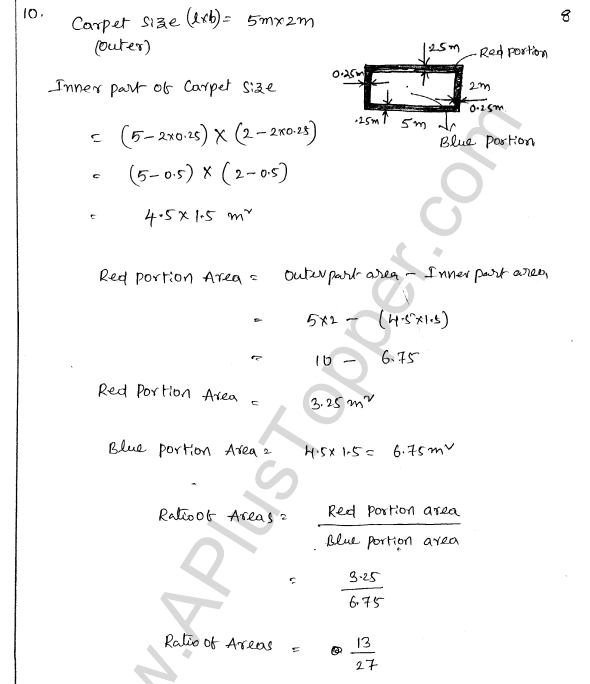 10.
8
Carpet Size (lxb) = 5mx2m
(outer)
.25m
Red portion
0.25m
2m
0.25m
.25m
5m
Blue portion
Inner part of Carpet Size
= (5-2x0.25) X (2-2x0.25)
= (5-0.5) X (2-0.5)
= 4.5 x 1.5 m²
Red portion Area = Outer part area - Inner part area
= 5x2 - (4.5x1.5)
= 10 - 6.75
Red Portion Area = 3.25 m²
Blue portion Area = 4.5x 1.5 = 6.75 m²
Ratio of Areas = Red Portion area
Blue portion area
= 3.25
6.75
Ratio of Areas = 13
27
w.APlusTopper.com